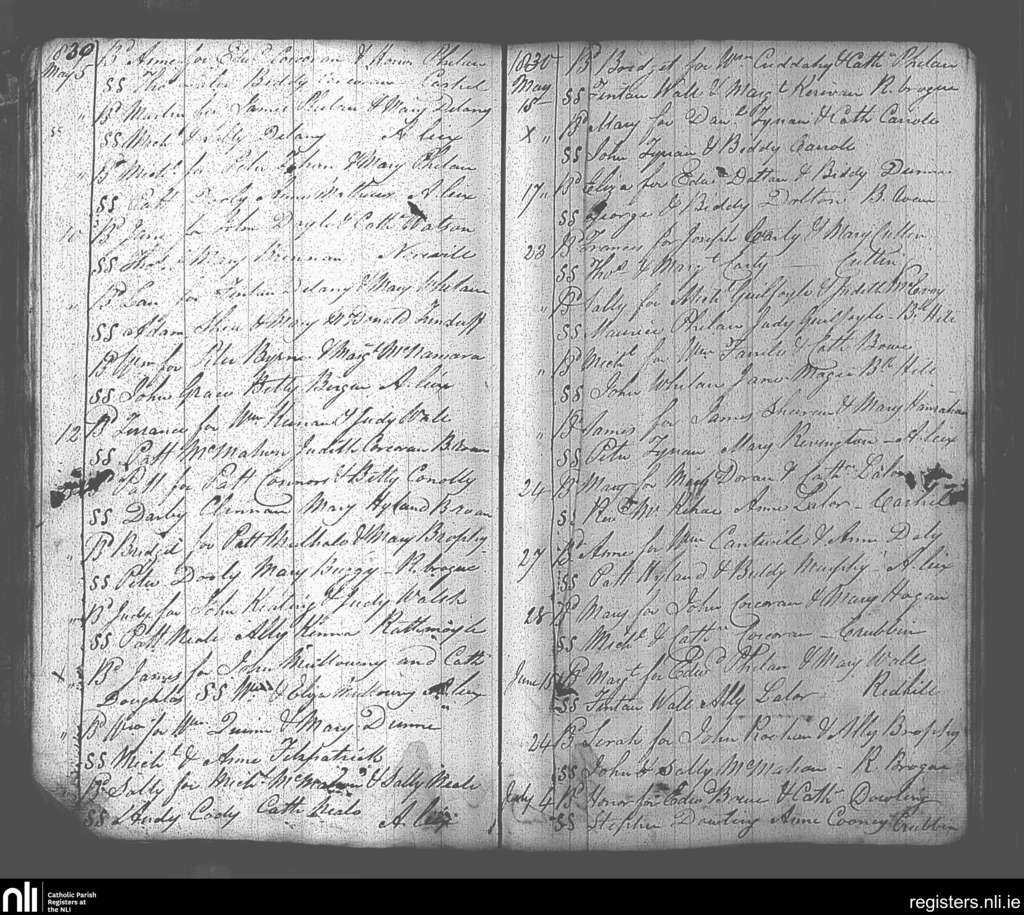 1830 Bd Anne for Edwd Corcoran & Honor Phelan
May 5 SS Thos Beddy Cashel
" Bd Martin for James Phelan & Mary Delany
SS Michl & Delany A. leix
" Bd Michl for Peter & Mary Phelan
SS Patt Dooly Anne A. leix
10 Bd Jane for John Doyle & Cath Watson
SS Thos & Mary Brennan
" Bd for Fintan Delany & Mary Phelan
SS Adam & Mary McDonald
Bd for Peter Byrne & Margt McNamara
SS John Grace Betty Bergin A. leix
12 Bd for Wm Keenan & Judy Wale
SS Patt McMahon Judith Corcoran
Bd Patt for Patt Connors & Betty Conolly
SS Darby Mary Hyland
" Bd Bridgid for Patt & Mary Brophy
SS Peter Dooly Mary Buggy - R. brogue
" Bd Judy for John Keating & Judy Walsh
SS Patt Neale Ally Kenna Rathmoyle
X " Bd James for John Mullowney and Cath
Doughter SS Wm & Eliza Mullowny A. leix
" Bd for Wm Quinn & Mary Dunne
SS Michl & Anne Fitzpatrick
" Bd Sally for Michl McMahon & Sally Neale
SS Cody Cath Neale A. leix
1830 Bd Bridget for Wm Cuddahy & Cathn Phelan
May 15 SS Fintan Wale & Margt Kerevan R. brogue
X " Bd Mary for Danl Tynan & Cath Carrole
SS John Tynan & Biddy Carrole
17 " Bd Eliza for Edwd Dalton & Biddy Dunne
SS George & Biddy Dolton
23 Bd Frances for Joseph Carty & Mary Cullen
SS Thos & Margt Carty
" Bd Sally for Michl Guilfoyle & Judith McEvoy
SS Maurice Phelan Judy Guilfoyle - Bk Hill
" Bd Michl for Wm & Cath Bowe
SS John Whelan Jane Magee Bk Hill
" Bd James for James & Mary Hanrahan
SS Peter Tynan Mary Revington - A. leix
24 Bd Mary for Doran & Cathn Lalor
SS Revd Mr Anne Lalor - Cashel
27 Bd Anne for Wm Cantwell & Anne Daly
SS Patt Hyland & Biddy Murphy - A. leix
28 Bd Mary for John Corcoran & Mary Hogan
SS Michl & Cathn Corcoran - Crubbin
June 15 Bd Margt for Edwd Phelan & Mary Wale
SS Fintan Wale Ally Lalor Redhill
24 Bd Sarah for John & Ally Brophy
SS John & Sally McMahon - R. Brogue
July 4 Bd Honor for Edwd Brene & Cathn Dowling
SS Stephen Dowling Anne Cooney Crubbin
nli
Catholic Parish
Registers at
the NLI
registers.nli.ie